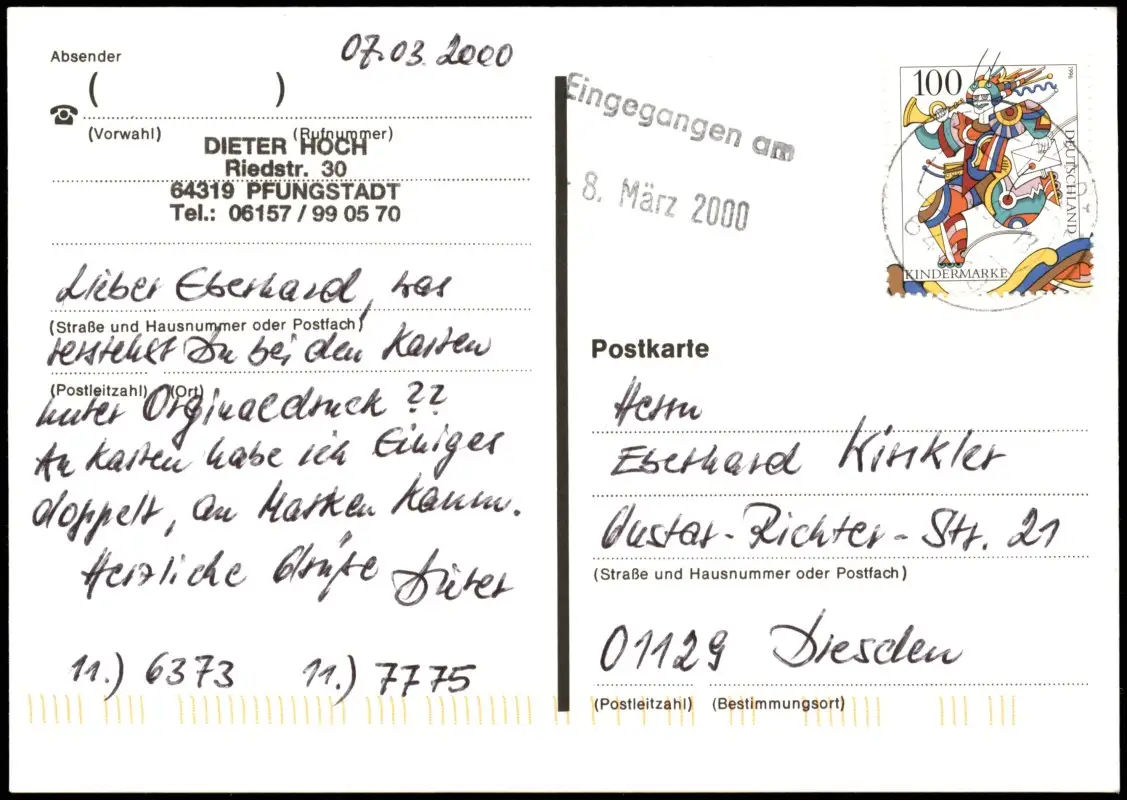 Absender
07.03.2000
(            )
(Vorwahl) (Rufnummer)
DIETER HOCH
Riedstr. 30
64319 PFUNGSTADT
Tel.: 06157 / 99 05 70
Lieber Eberhard, was
(Straße und Hausnummer oder Postfach)
verstehst Du bei den Karten
(Postleitzahl) (Ort)
unter Orginaldruck ??
An Karten habe ich Einiges
doppelt, an Marken kaum.
Herzliche Grüße Dieter
11.) 6373 11.) 7775
Eingegangen am
8. März 2000
100
1996
DEUTSCHLAND
KINDERMARKE
Postkarte
Herrn
Eberhard Winkler
Gustav-Richter-Str. 21
(Straße und Hausnummer oder Postfach)
01129 Dresden
(Postleitzahl) (Bestimmungsort)